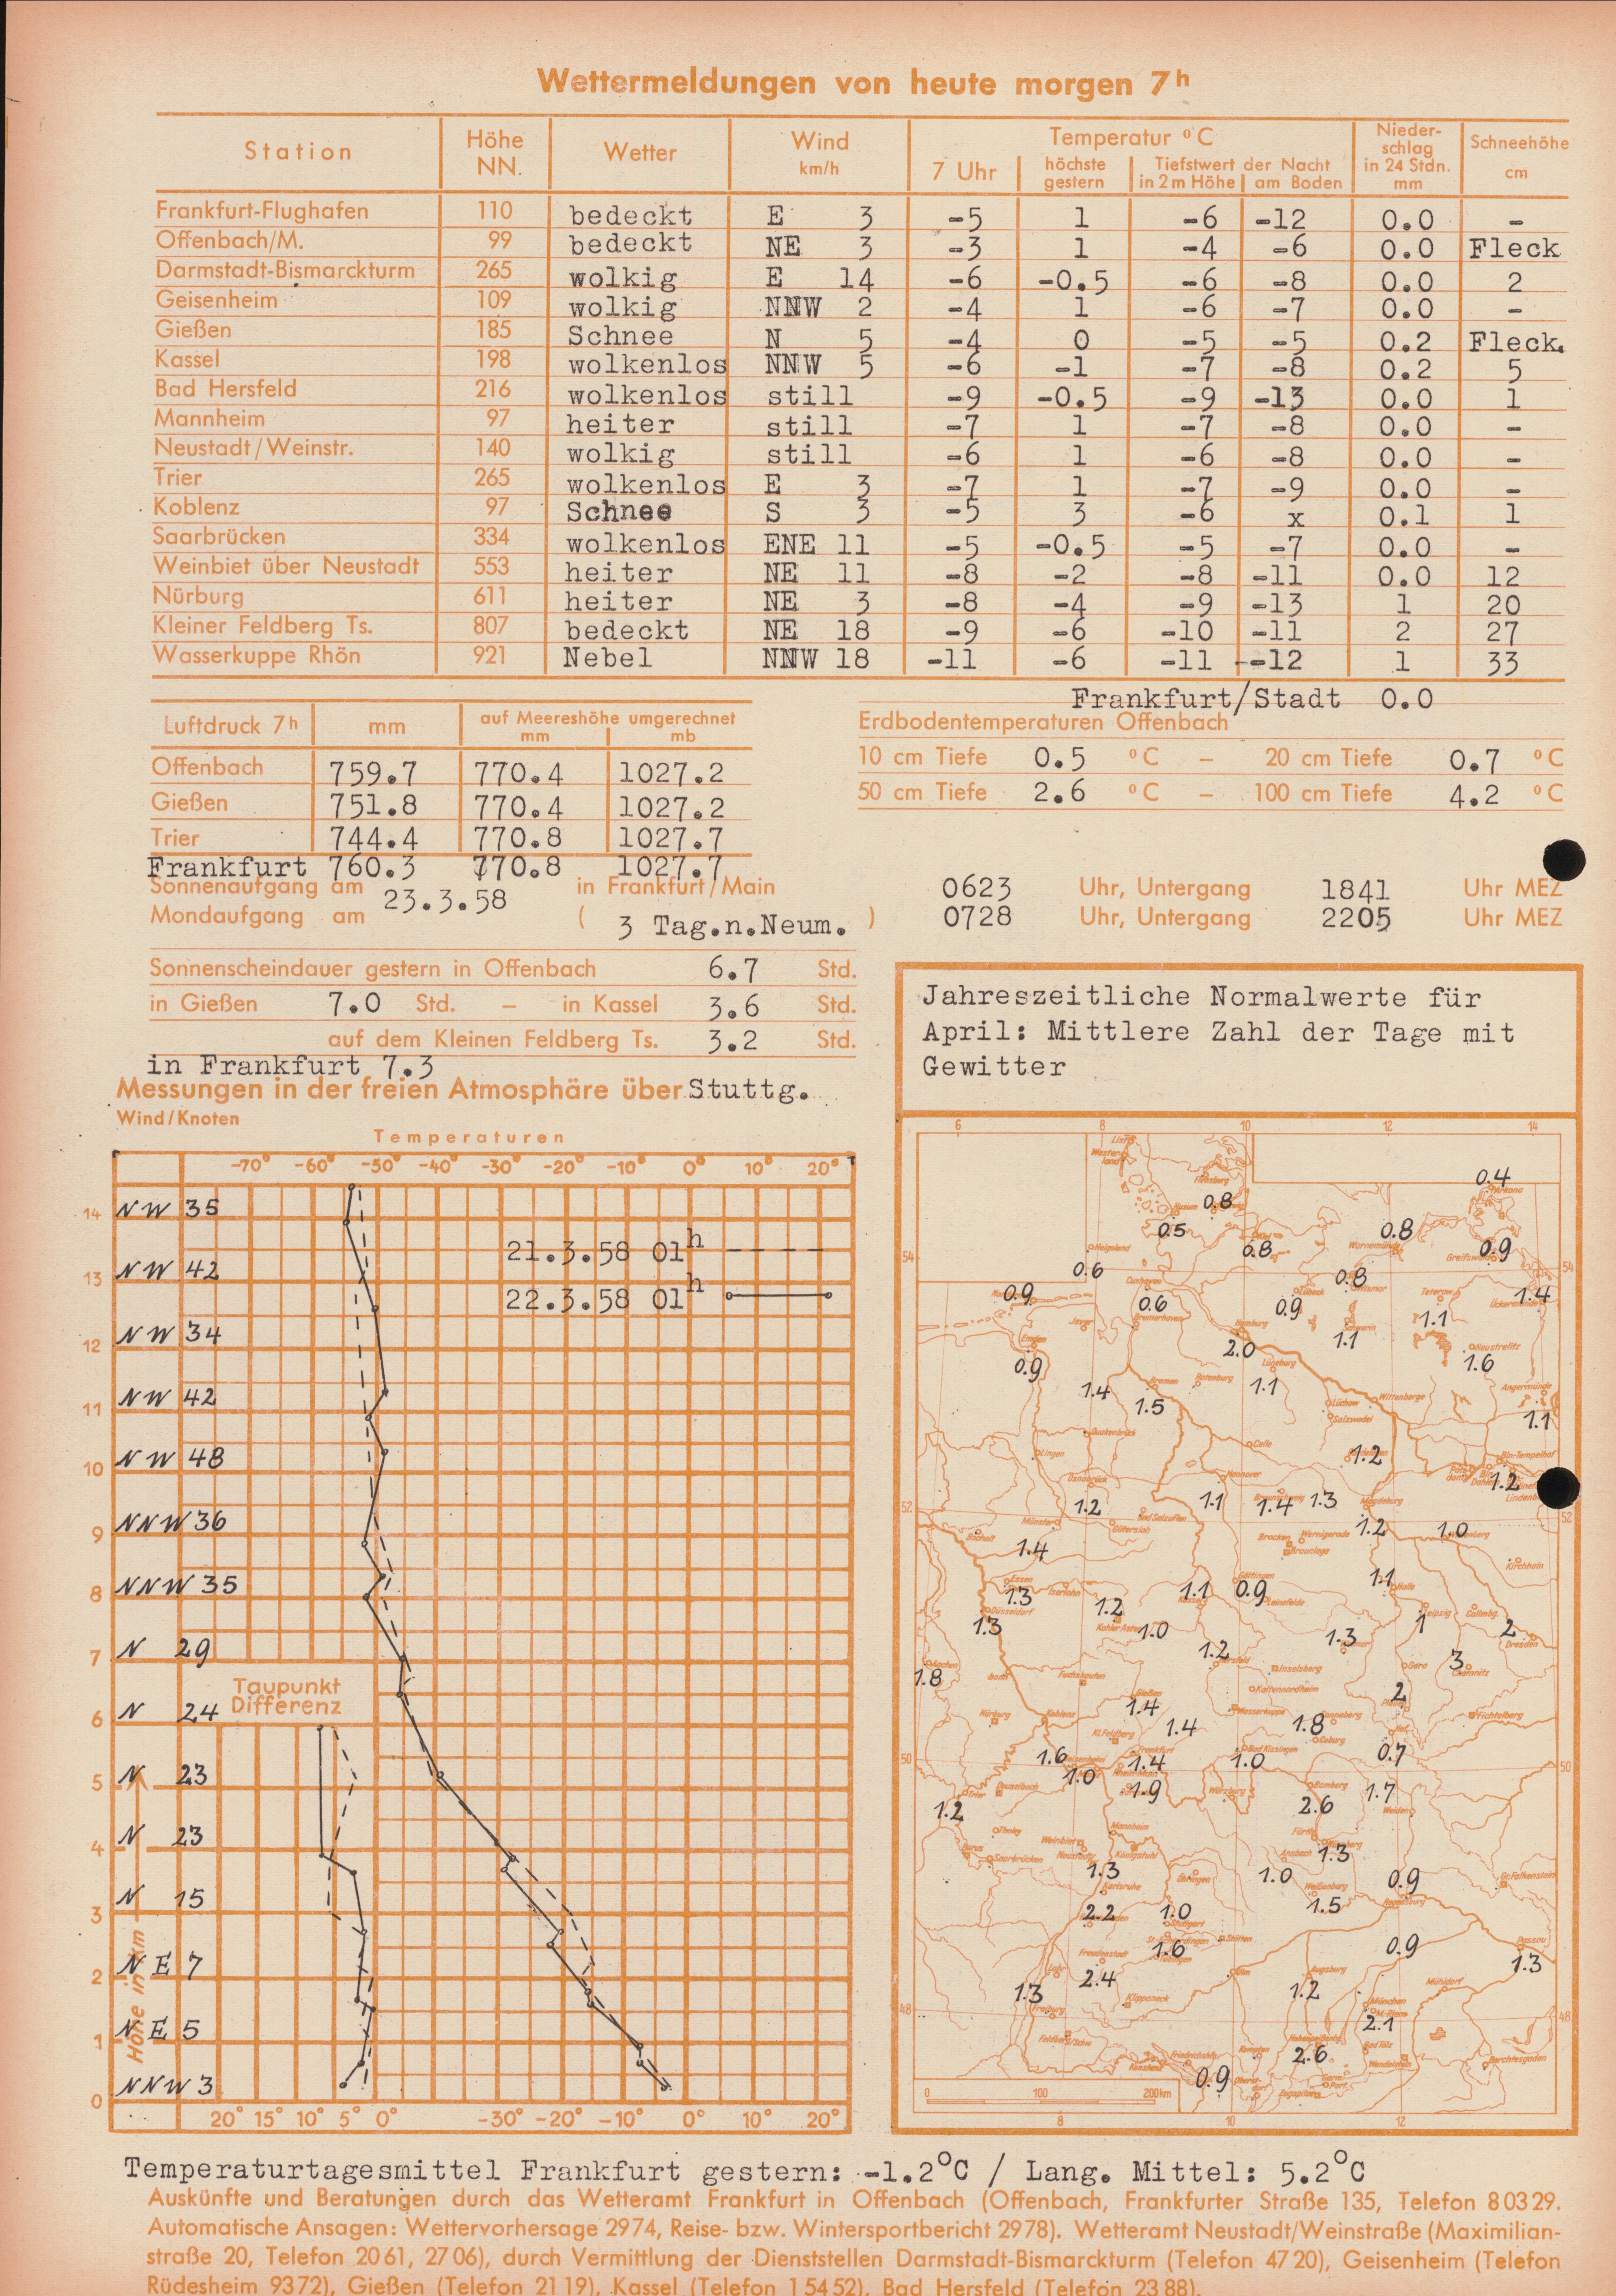 Wettermeldungen von heute morgen 7h
Station Höhe NN. Wetter Wind km/h Temperatur °C Nieder-schlag in 24 Stdn. mm Schneehöhe cm
7 Uhr höchste gestern Tiefstwert der Nacht in 2m Höhe am Boden
Frankfurt-Flughafen 110 bedeckt E 3 -5 1 -6 -12 0.0 -
Offenbach/M. 99 bedeckt NE 3 -3 1 -4 -6 0.0 Fleck
Darmstadt-Bismarckturm 265 wolkig E 14 -6 -0.5 -6 -8 0.0 2
Geisenheim 109 wolkig NNW 2 -4 1 -6 -7 0.0 -
Gießen 185 Schnee N 5 -4 0 -5 -5 0.2 Fleck.
Kassel 198 wolkenlos NNW 5 -6 -1 -7 -8 0.2 5
Bad Hersfeld 216 wolkenlos still -9 -0.5 -9 -13 0.0 1
Mannheim 97 heiter still -7 1 -7 -8 0.0 -
Neustadt/Weinstr. 140 wolkig still -6 1 -6 -8 0.0 -
Trier 265 wolkenlos E 3 -7 1 -7 -9 0.0 -
Koblenz 97 Schnee S 3 -5 3 -6 x 0.1 1
Saarbrücken 334 wolkenlos ENE 11 -5 -0.5 -5 -7 0.0 -
Weinbiet über Neustadt 553 heiter NE 11 -8 -2 -8 -11 0.0 12
Nürburg 611 heiter NE 3 -8 -4 -9 -13 1 20
Kleiner Feldberg Ts. 807 bedeckt NE 18 -9 -6 -10 -11 2 27
Wasserkuppe Rhön 921 Nebel NNW 18 -11 -6 -11 --12 1 33
Frankfurt/Stadt 0.0
Luftdruck 7h mm auf Meereshöhe umgerechnet mm mb
Offenbach 759.7 770.4 1027.2
Gießen 751.8 770.4 1027.2
Trier 744.4 770.8 1027.7
Frankfurt 760.3 770.8 1027.7
Erdbodentemperaturen Offenbach
10 cm Tiefe 0.5 °C – 20 cm Tiefe 0.7 °C
50 cm Tiefe 2.6 °C – 100 cm Tiefe 4.2 °C
Sonnenaufgang am 23.3.58 in Frankfurt/Main 0623 Uhr, Untergang 1841 Uhr MEZ
Mondaufgang am ( 3 Tag.n.Neum. ) 0728 Uhr, Untergang 2205 Uhr MEZ
Sonnenscheindauer gestern in Offenbach 6.7 Std.
in Gießen 7.0 Std. – in Kassel 3.6 Std.
auf dem Kleinen Feldberg Ts. 3.2 Std.
in Frankfurt 7.3
Messungen in der freien Atmosphäre über Stuttg.
Wind/Knoten
Temperaturen
-70° -60° -50° -40° -30° -20° -10° 0° 10° 20°
14 NW 35
21.3.58 01h
13 NW 42
22.3.58 01h
12 NW 34
11 NW 42
10 NW 48
9 NNW 36
8 NNW 35
7 N 29
Taupunkt
Differenz
6 N 24
5 N 23
4 N 23
3 N 15
2 NE 7
1 NE 5
0 NNW 3
Höhe in km
20° 15° 10° 5° 0° -30° -20° -10° 0° 10° 20°
Jahreszeitliche Normalwerte für
April: Mittlere Zahl der Tage mit
Gewitter
6 8 10 12 14
0.4
0.8
0.5 0.8 0.8 0.9
54 54
0.6 0.8
0.9 0.6 0.9 1.4
1.1 1.1
2.0
0.9 1.6
1.4 1.5 1.1 1.1
1.2 1.2
52 1.2 1.1 1.4 1.3 52
1.4 1.2 1.0
1.3 1.1 0.9 1.1
1.2
1.3 1.0 1.3 1 2
1.8 1.2 3
1.4 2
1.4 1.8
50 1.6 1.4 1.0 0.7 50
1.0 1.9 1.7
1.2 2.6
1.3 1.3
1.0 0.9
2.2 1.0 1.5
1.6 0.9
2.4 1.3
1.3 1.2
48 2.1 48
2.6
0.9
0 100 200 km
8 10 12
Temperaturtagesmittel Frankfurt gestern: -1.2°C / Lang. Mittel: 5.2°C
Auskünfte und Beratungen durch das Wetteramt Frankfurt in Offenbach (Offenbach, Frankfurter Straße 135, Telefon 80329.
Automatische Ansagen: Wettervorhersage 2974, Reise- bzw. Wintersportbericht 2978). Wetteramt Neustadt/Weinstraße (Maximilian-
straße 20, Telefon 2061, 2706), durch Vermittlung der Dienststellen Darmstadt-Bismarckturm (Telefon 4720), Geisenheim (Telefon
Rüdesheim 9372), Gießen (Telefon 2119), Kassel (Telefon 15452), Bad Hersfeld (Telefon 2388).